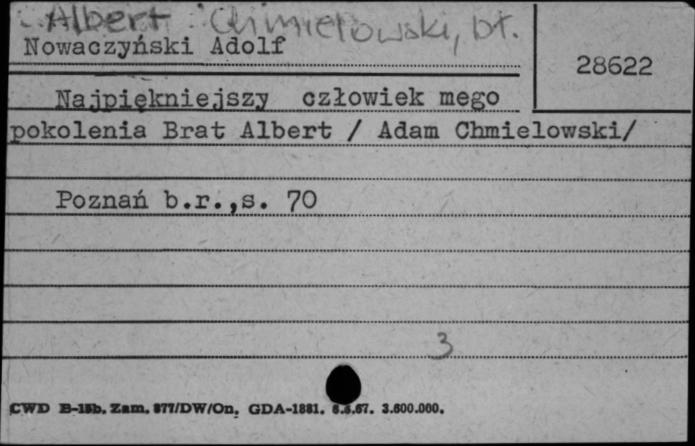 Albert Chmielowski, bł.
Nowaczyński Adolf
28622
Najpiękniejszy człowiek mego
pokolenia Brat Albert / Adam Chmielowski/
Poznań b.r.,s. 70
3
CWD B-15b. Zam. 877/DW/On. GDA-1881. 6.6.67. 3.600.000.